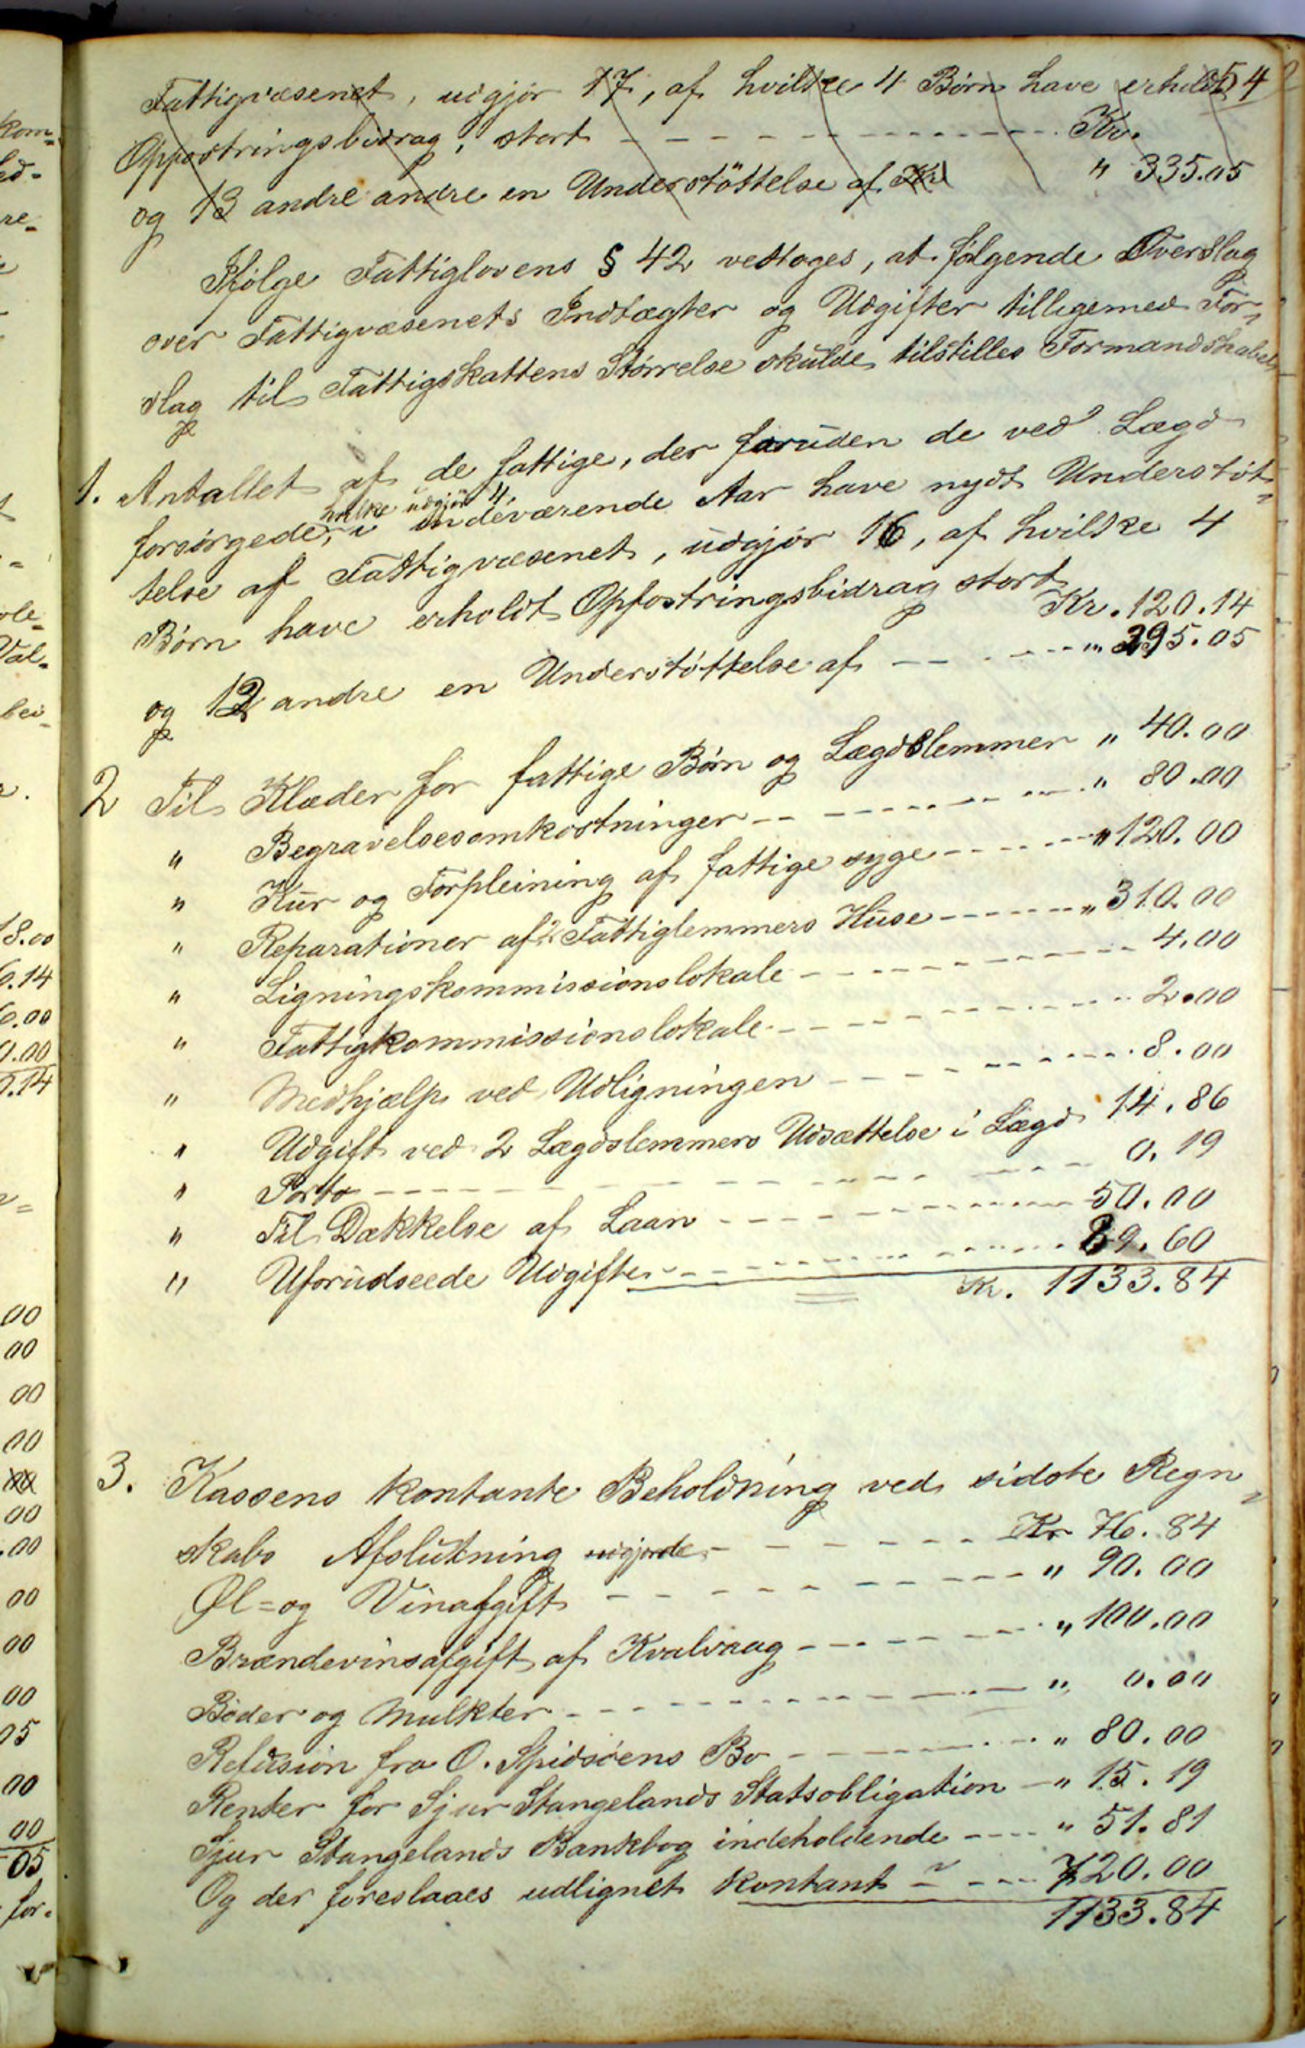 54
Fattigvæsenet, udgjør 17, af hvilke 4 Børn have erholdt
Opfostringsbidrag, stort - - - Kr.
og 13 andre andre en Understøttelse af Kr " 335.05
Ifølge Fattiglovens § 42 vedtoges, at følgende Overslag
over Fattigvæsenets Indtægter og Udgifter tilligemed For-
slag til Fattigskattens Størrelse skulde tilstilles Formandskabet
1. Antallet af de fattige, der foruden de ved Lægd
forsørgede, hvilke udgjør 4, i indeværende Aar have nydt Understøt-
telse af Fattigvæsenet, udgjør 16, af hvilke 4
Børn have erholdt Opfostringsbidrag stort Kr. 120.14
og 12 andre en Understøttelse af - - - " 295.05
2 Til Klæder for fattige Børn og Lægdslemmer " 40.00
" Begravelsesomkostninger - - - " 80.00
" Kur og Forpleining af fattige syge - - - " 120.00
" Reparationer af 2 Fattiglemmers Huse - - - " 310.00
" Ligningskommissionslokale - - - 4.00
" Fattigkommissionslokale - - - 2.00
" Medhjælp ved Udligningen - - - 8.00
" Udgift ved 2 Lægdslemmers Udsættelse i Lægd 14.86
" Porto - - - 0.19
" Til Dækkelse af Laan - - - 50.00
" Uforudseede Udgifter - - - 89.60
Kr. 1133.84
3. Kassens kontante Beholdning ved sidste Regn-
skabs Afslutning udgjorde - - - Kr 76.84
Øl- og Vinafgift - - - " 90.00
Brændevinsafgift af Kvalvaag - - - " 100.00
Bøder og Mulkter - - - " 0.00
Refusion fra O. Spidsøens Bo - - - " 80.00
Renter for Sjur Stangelands Statsobligation - " 15.19
Sjur Stangelands Bankbog indeholdende - - - " 51.81
Og der foreslaaes udlignet kontant - - - 720.00
1133.84